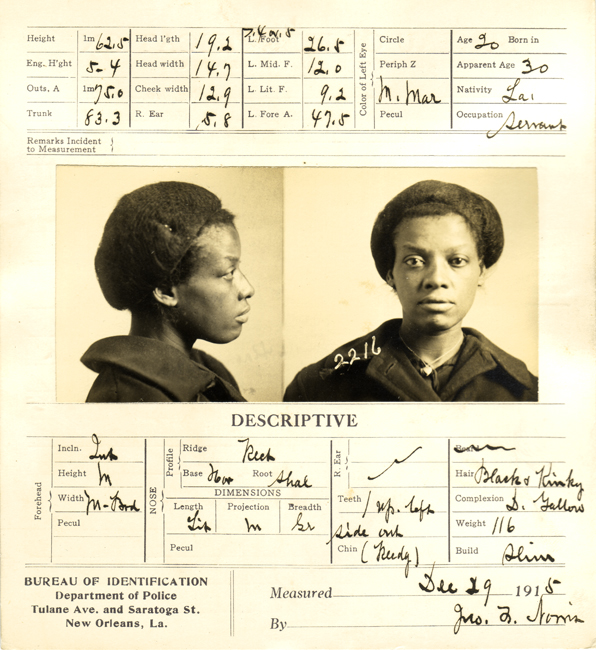 Height 1m 62.5 Head l'gth 19.2 L. Foot 26.5 Circle Age 20 Born in
Eng. H'ght 5-4 Head width 14.7 L. Mid. F. 12.0 Periph Z Apparent Age 30
Outs. A 1m 75.0 Cheek width 12.9 L. Lit F. 9.2 M. Mar Nativity La.
Trunk 83.3 R. Ear 5.8 L. Fore A. 47.5 Pecul Occupation Servant
Color of Left Eye
Remarks Incident
to Measurement
2216
DESCRIPTIVE
Forehead
Incln. Int
Height M
Width M-Brd
Pecul
NOSE
Profile
Ridge Rect
Base Hor Root Shal
DIMENSIONS
Length Projection Breadth
M Gr
Pecul
R. Ear
Teeth 1 up. left
side out
Chin
Beard
Hair Black & Kinky
Complexion D. Yellow
Weight 116
Build Slim
BUREAU OF IDENTIFICATION
Department of Police
Tulane Ave. and Saratoga St.
New Orleans, La.
Measured Dec 29 1915
By Jno. Norris